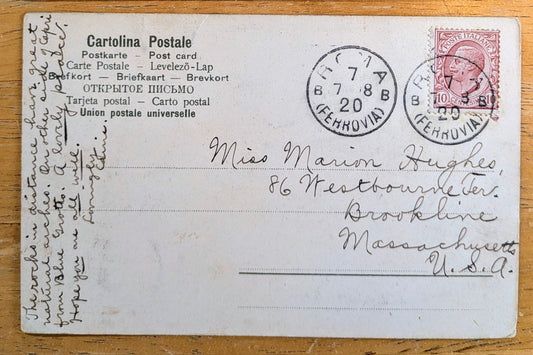 Cartolina Postale
Postkarte — Post card
Carte Postale — Levelező-Lap
Brefkort — Briefkaart — Brevkort
ОТКРЫТОЕ ПИСЬМО
Tarjeta postal — Carto postal
Union postale universelle
The rocks in distance have great
natural arches. On other side of Capri
from Blue Grotto. A lovely place.
Hope you are all well.
Lovingly
ROMA
7
B 7 8 B
20
(FERROVIA)
POSTE ITALIANE
10
ROMA
7
B 8 B
20
(FERROVIA)
Miss Marion Hughes,
86 Westbourne Ter.
Brookline
Massachusetts
U.S.A.